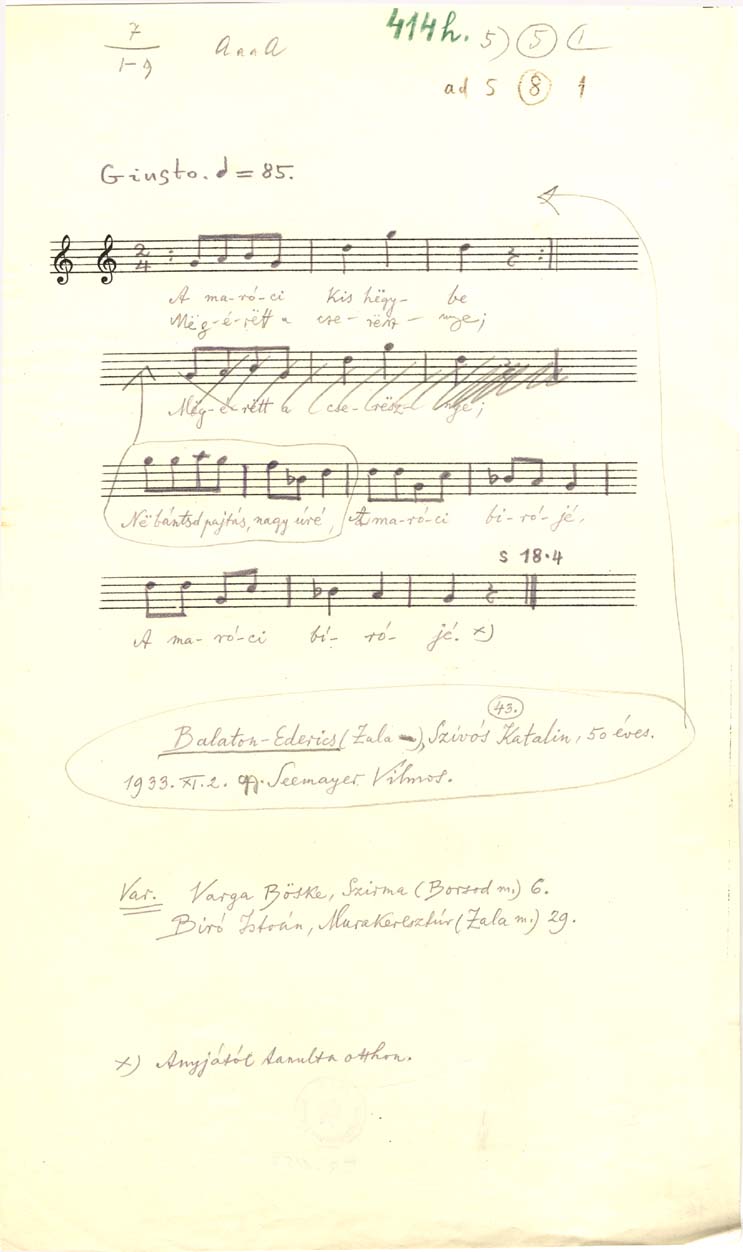 7 AnnA 414h. 5) 5 (1
1-9
ad 5 8 1
Giusto. = 85.
2
4
A ma-ró-ci Kis hëgy- be
Mëg-é-rëtt a cse-rësz-nye;
Mëg-é-rëtt a cse-rësz-nye;
Në bántsd pajtás, nagy úré, A ma-ró-ci bi-ró-jé,
S 18.4
A ma-ró-ci bí-ró-jé. x)
43.
Balaton-Ederics (Zala), Szívós Katalin, 50 éves.
1933. XI. 2. Seemayer Vilmos.
Var. Varga Böske, Szirma (Borsod m.) 6.
Biró István, Murakeresztúr (Zala m.) 29.
x) Anyjától tanulta otthon.